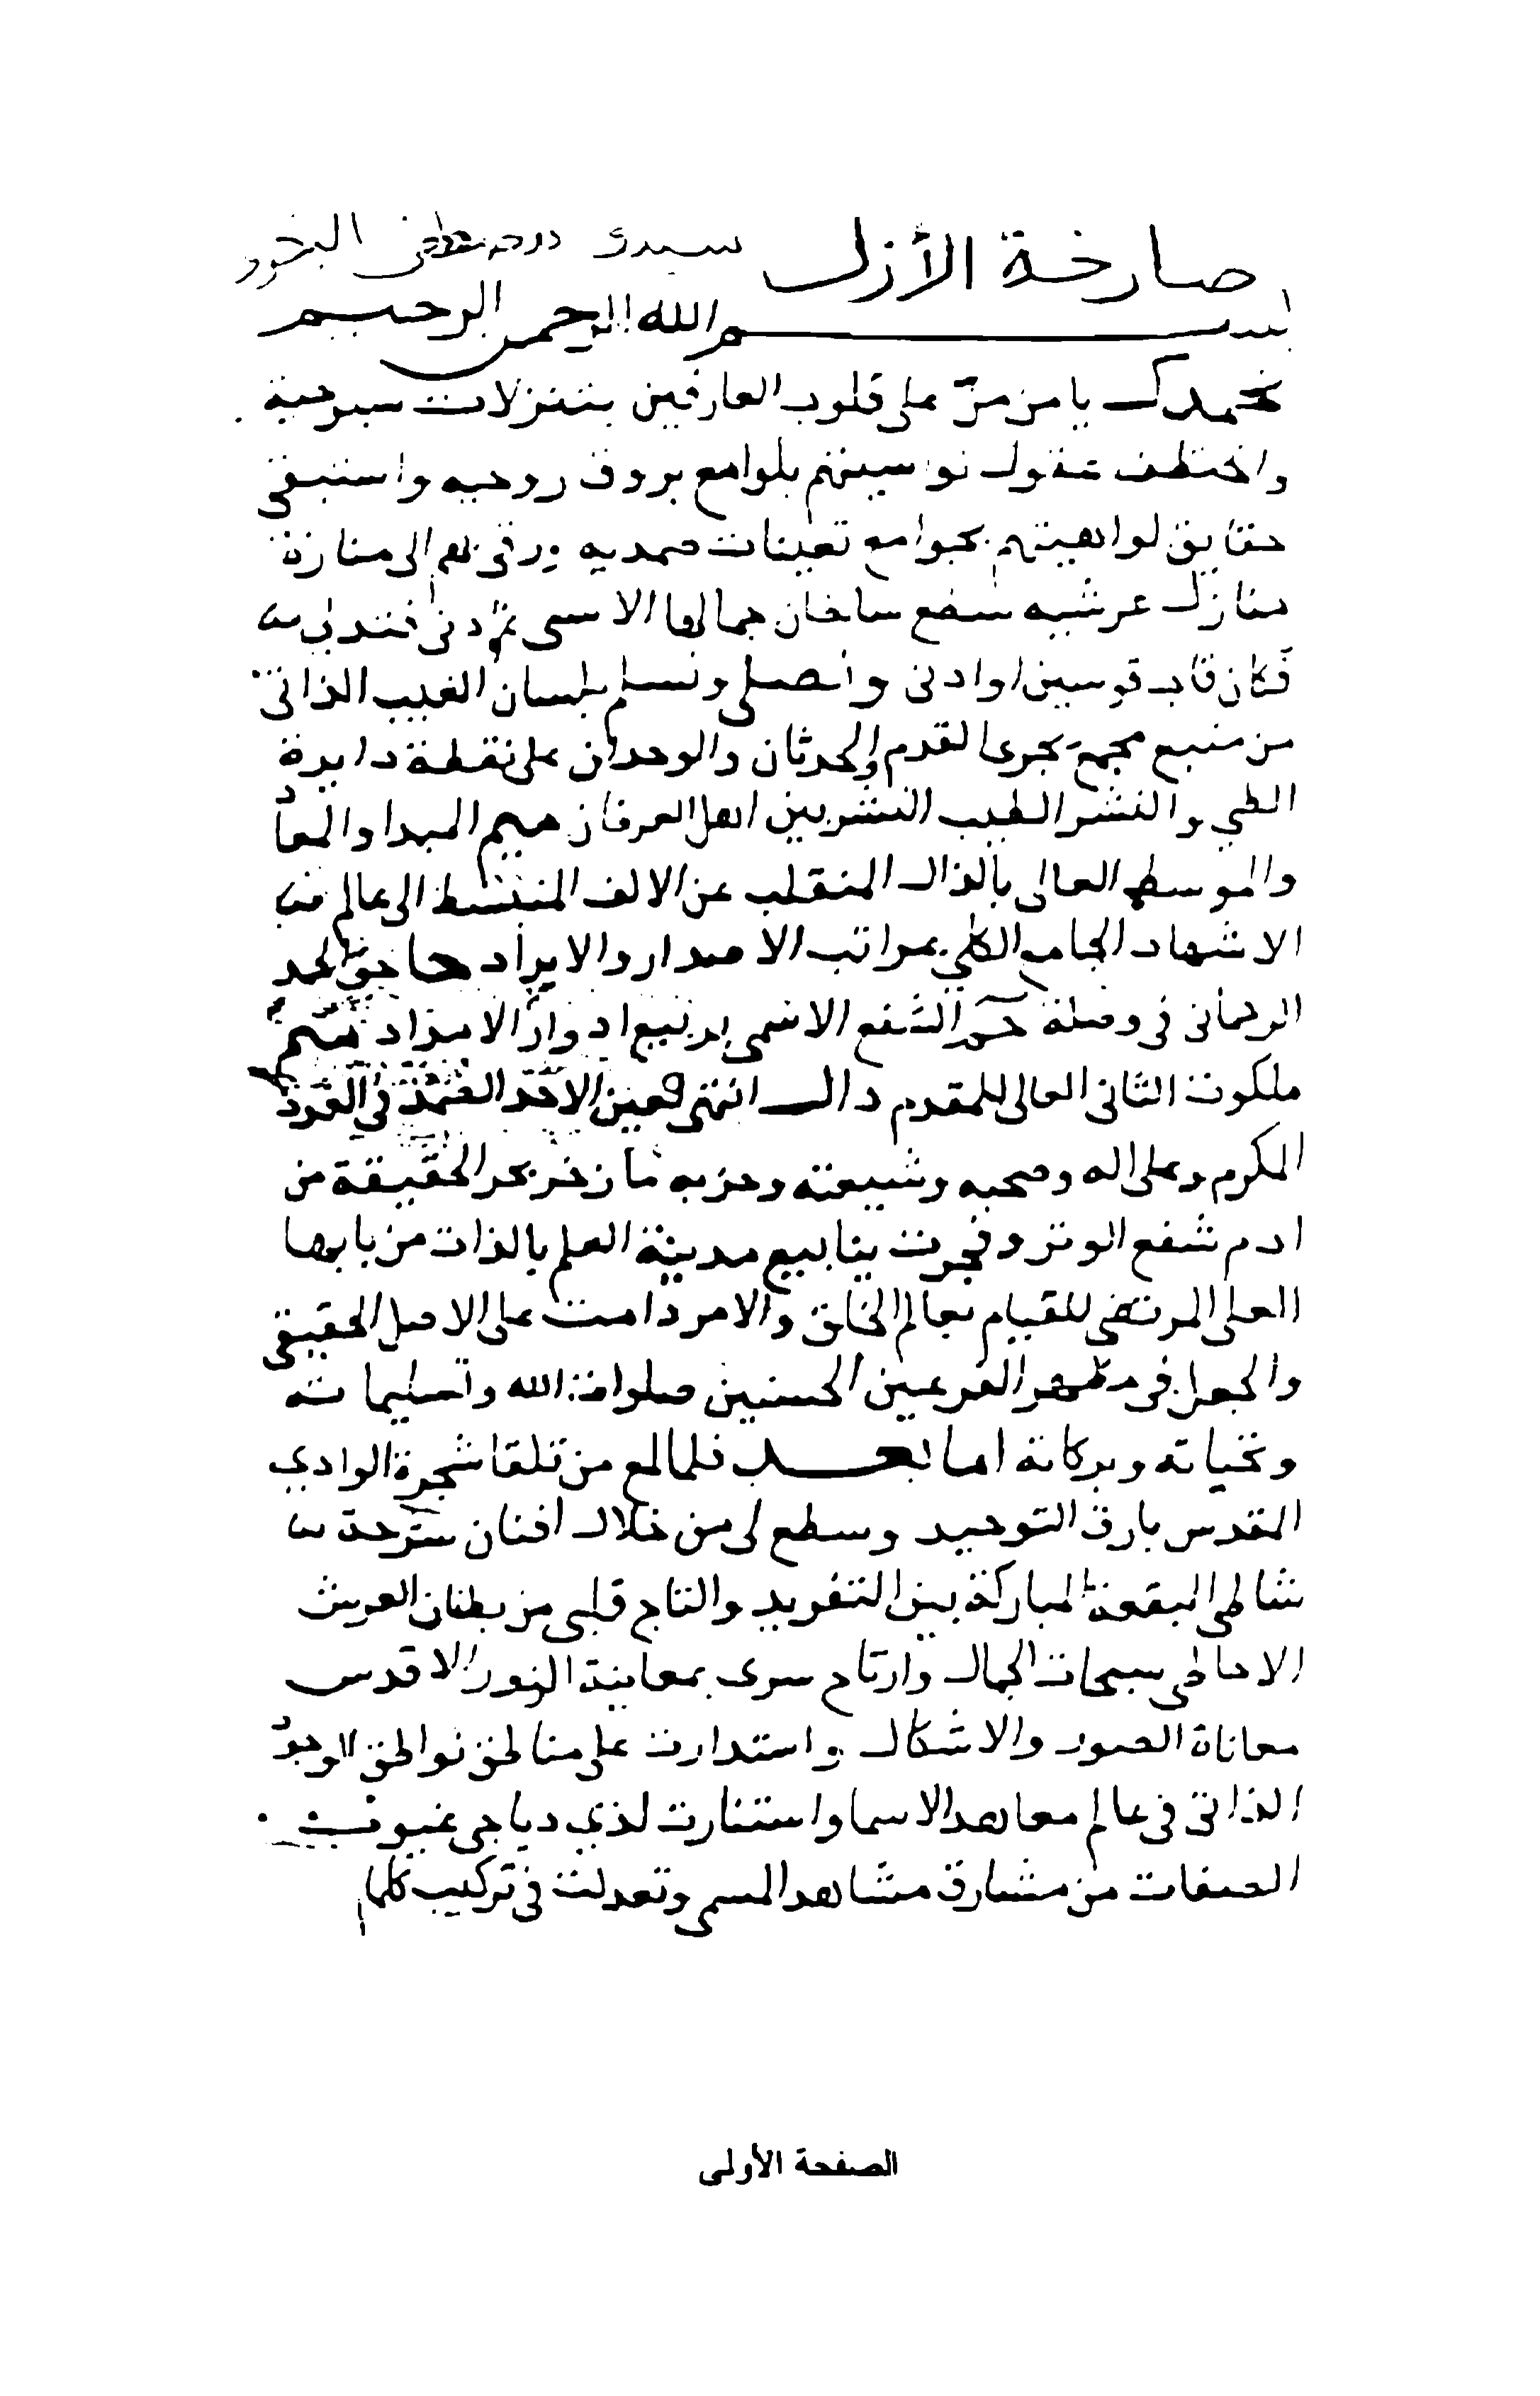 صارخة الأزل سيدى مصطفى
بسم الله الرحمن الرحيم
نحمدك يا من منّ على قلوب العارفين بتنزلات سبوحية
واختطف عقول نوسيتهم بلوامع بروق روحيه واستبقى
حقايق لواهيتهم بجوامع تعينات صمديه ورقى بهم الى منازة
منازل عرشيه جمالها الاسمى ثم دنى فتدلى
فكان قاب قوسين اوادنى وأصلى ونسلم بلسان الغيب الذاتى
من منبع مجمع بحرى القدم والحدثان والوحدان على نقطة دايرة
الطي والنشر الطيب النشريين اهل العرفان ميم المبدا والمعاد
والموسط العالى بالذال المنقلب عن الالف المنبسط الى عالم
الاشهاد الجامع الكلي بمراتب الاصدار والايراد حا حق الحمد
الرحمانى فى وصلة الشفع الاسمى ادوار الامداد ميم
ملكوت الثانى العالى المقدم دال انتهى الاحد الصمد فى الفرد
المكرم وعلى اله وصحبه وشيعته وحزبه ما زخر بحر الحقيقة من
ادم شفع الوتر وفجرت ينابيع مدينة العلم بالذات من بابها
العلى المرتضى للقيام بعالم الخلق والامر دامت على الاصل الحقيقى
والجعل فى مظهر الفرعين الحسنين صلوات الله وتسليماته
وتحياته وبركاته اما بعد فلما لمع من تلقا شجرة الوادي
المقدس بارق التوحيد وسطع لى من خلال افنان
شاطى البقعة المباركة بين التفريد والتاج قلبى من بطنان العريش
الاحاطى سبحات الجمال وارتاح سرى بمعاينة النور الاقدس
معاناة الصور والاشكال واستدارت على مناطق نواطق الوجود
الذاتى فى عالم معاهد الاسما واستنارت لذي دياجى غيوث
الصفات من مشارق مشاهد المسمى وتعدلت فى تركيب كلمات
الصفحة الأولى